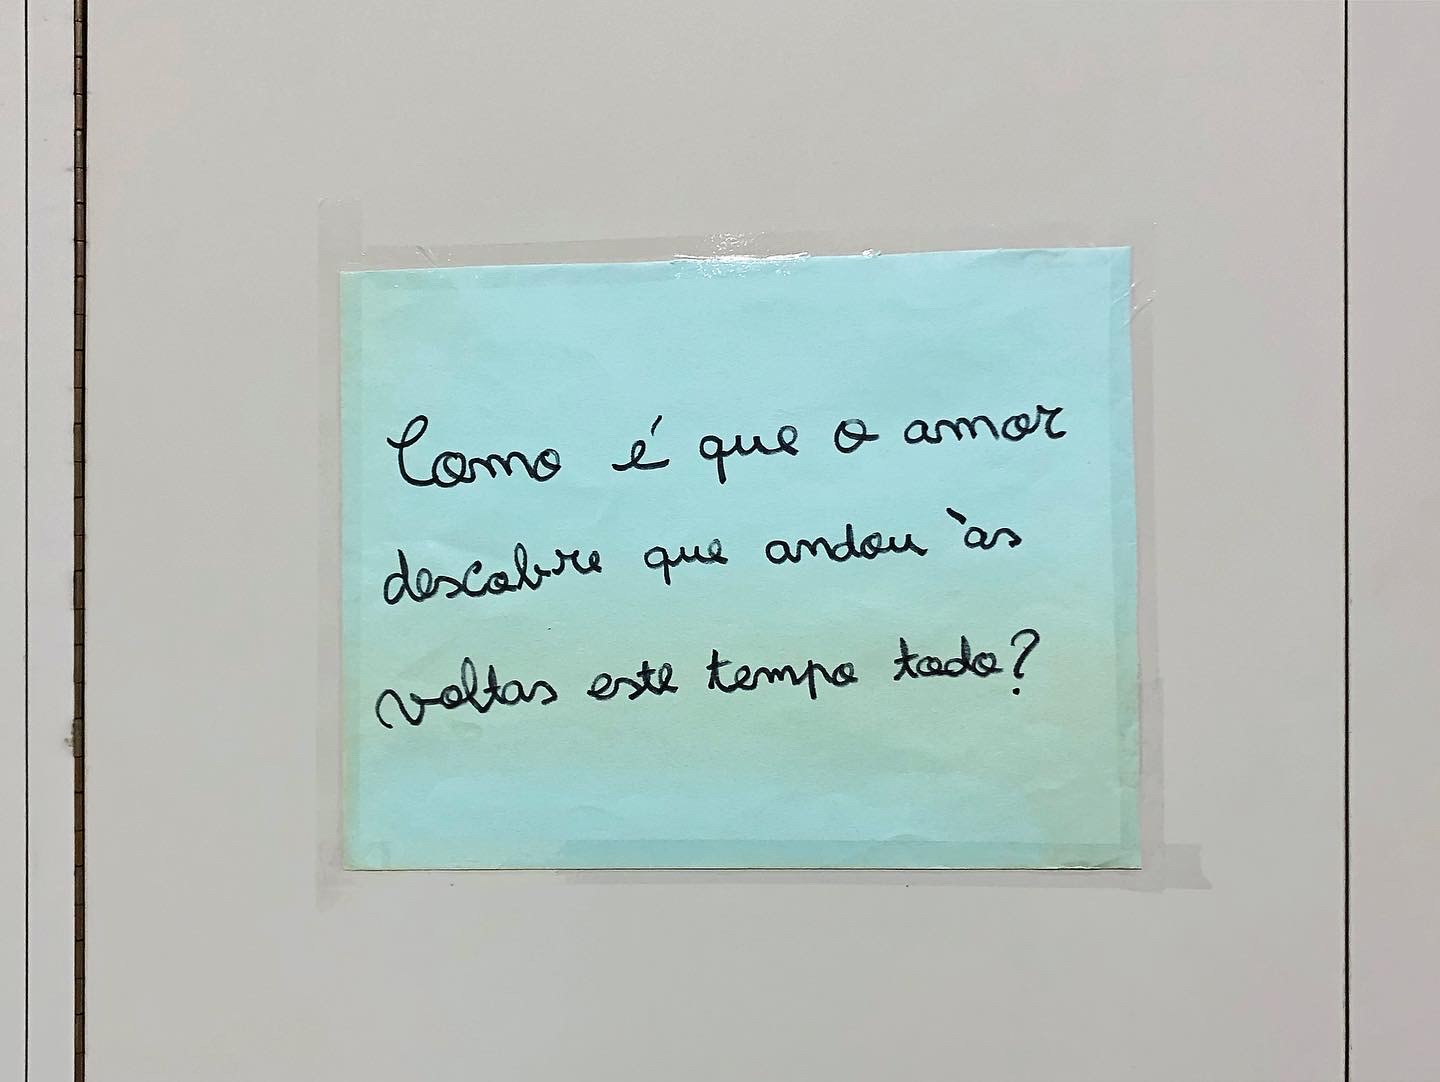 Como é que o amor
descobre que andou às
voltas este tempo todo?